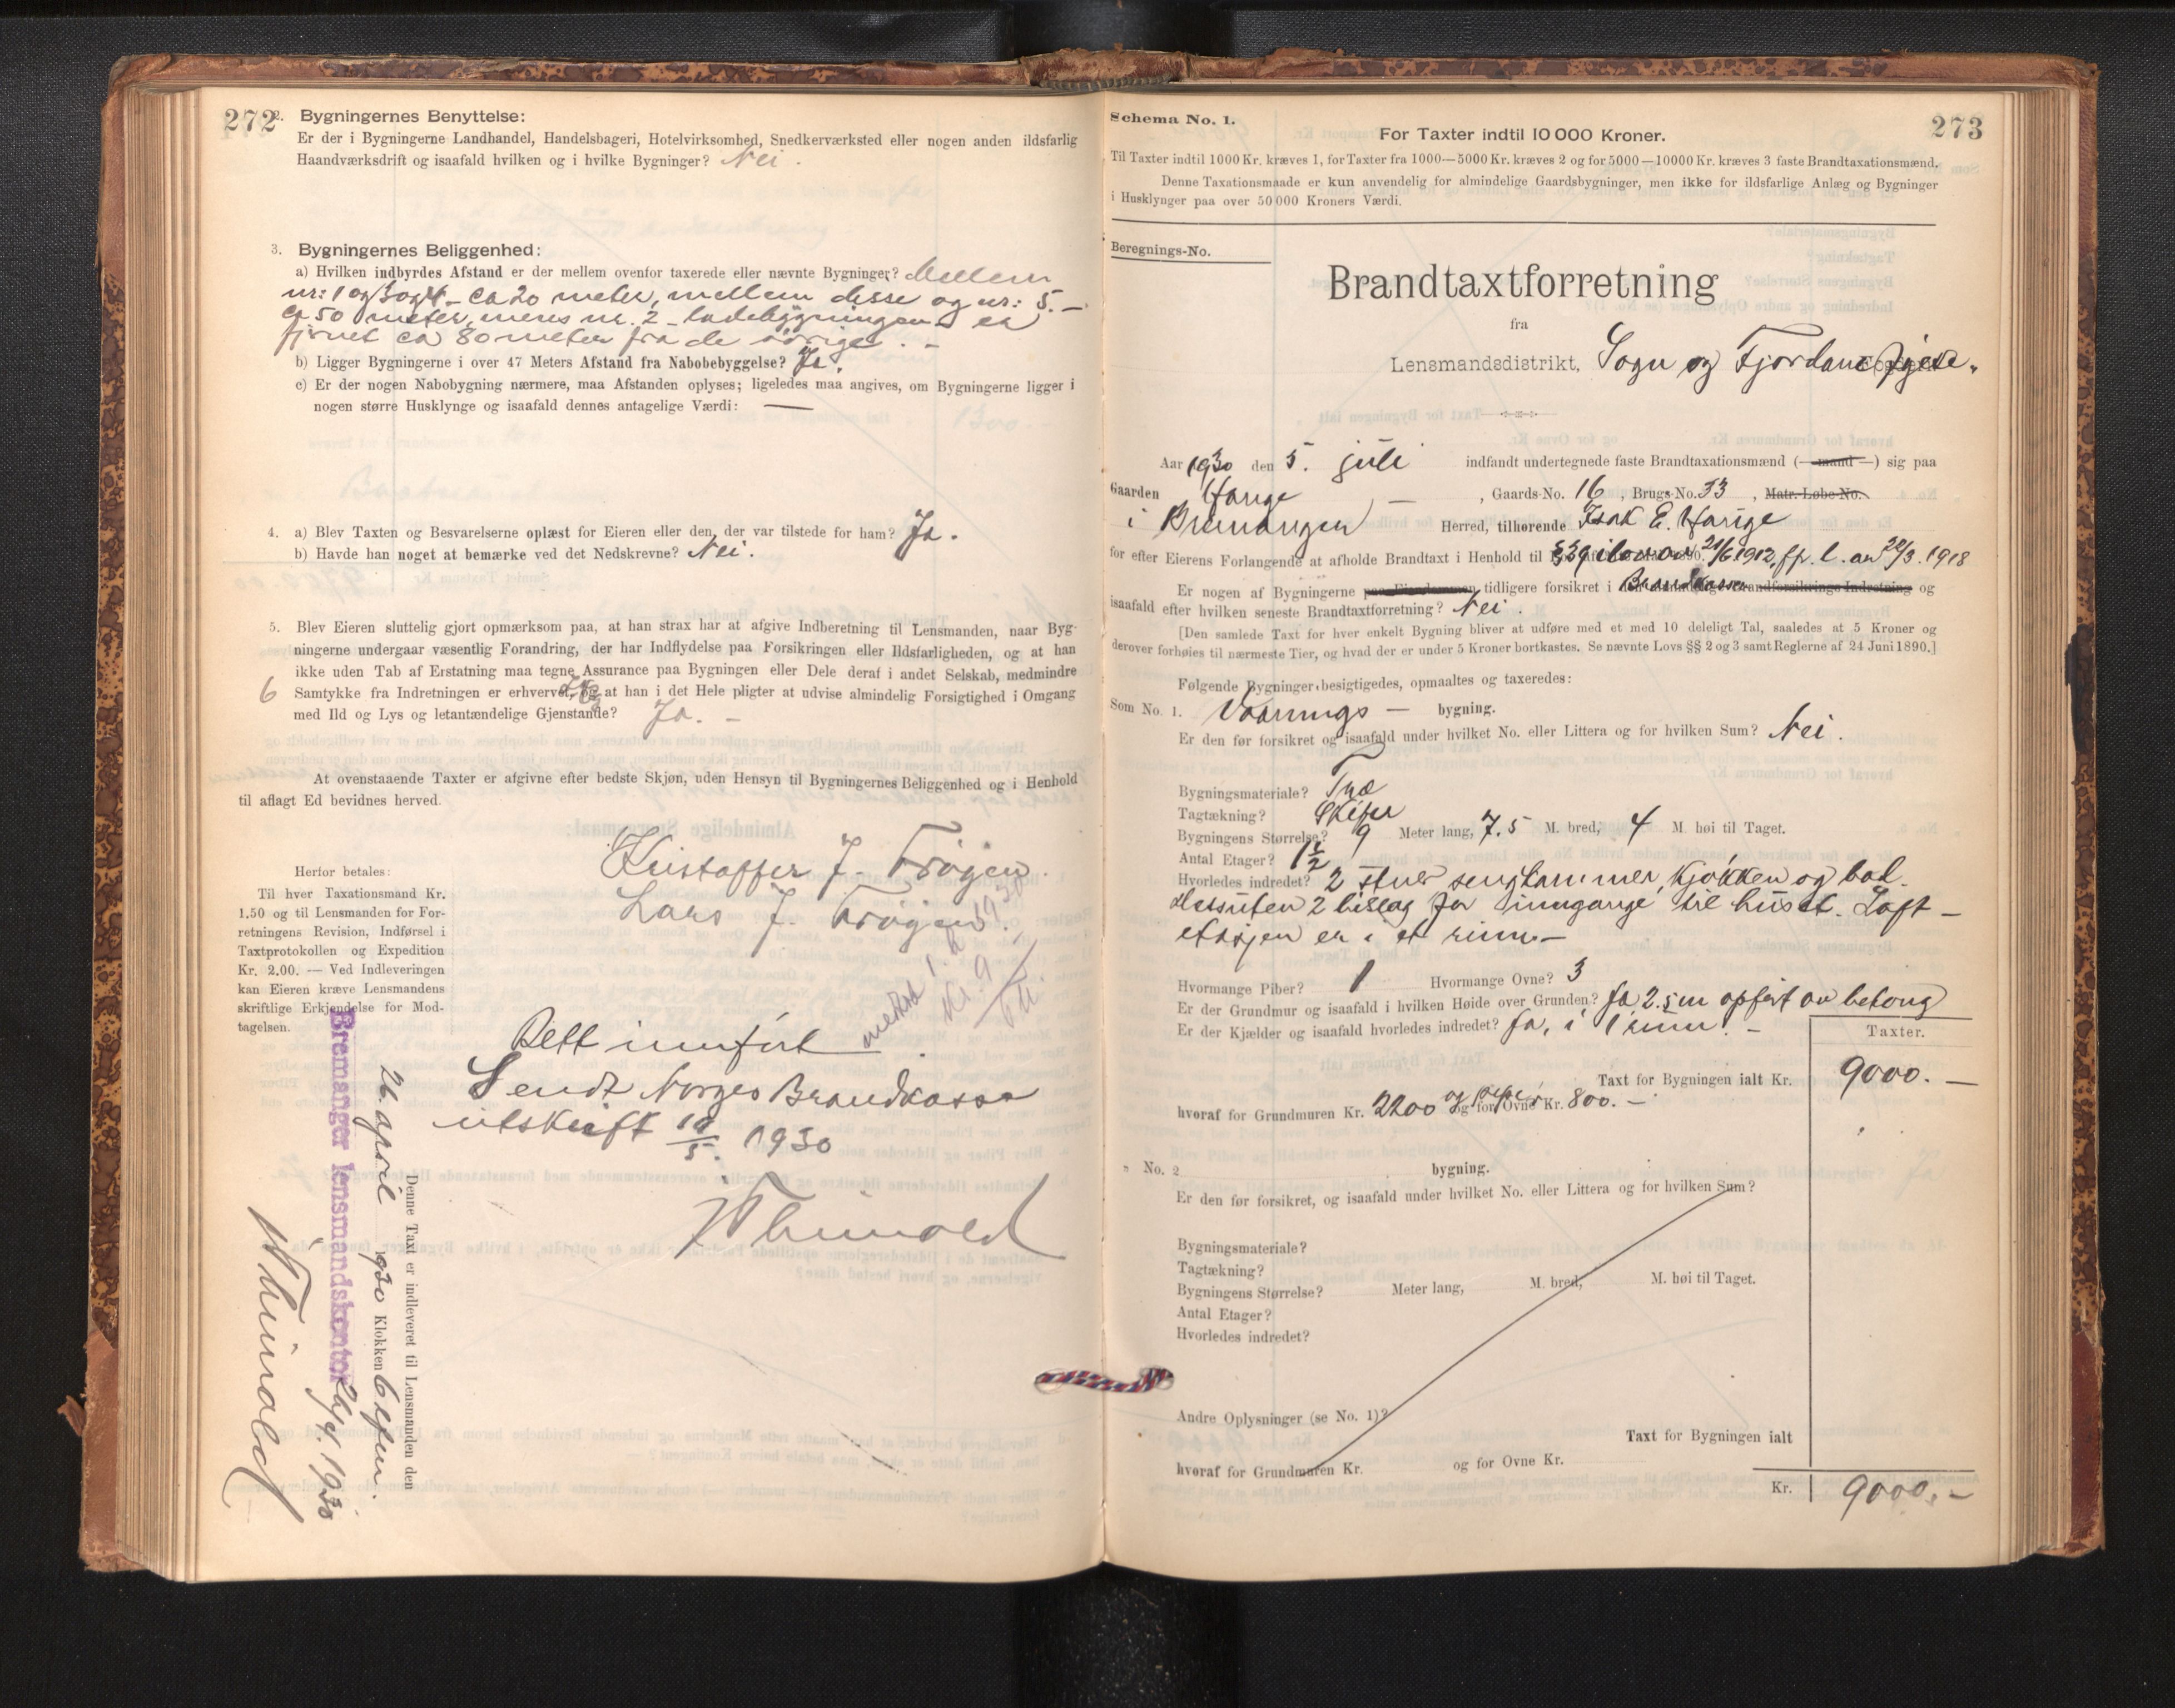 272
2. Bygningernes Benyttelse:
Er der i Bygningerne Landhandel, Handelsbageri, Hotelvirksomhed, Snedkerværksted eller nogen anden ildsfarlig
Haandværksdrift og isaafald hvilken og i hvilke Bygninger? Nei.
3. Bygningernes Beliggenhed:
a) Hvilken indbyrdes Afstand er der mellem ovenfor taxerede eller nævnte Bygninger? Mellem
nr: 1 og 3 og 4 - ca 20 meter, mellem disse og nr: 5. -
ca 50 meter, mens nr. 2 - ladebygningen - er
fjernet ca 80 meter fra de øvrige. -
b) Ligger Bygningerne i over 47 Meters Afstand fra Nabobebyggelse? Ja.
c) Er der nogen Nabobygning nærmere, maa Afstanden oplyses; ligeledes maa angives, om Bygningerne ligger i
nogen større Husklynge og isaafald dennes antagelige Værdi: —
4. a) Blev Taxten og Besvarelserne oplæst for Eieren eller den, der var tilstede for ham? Ja.
b) Havde han noget at bemærke ved det Nedskrevne? Nei.
5. Blev Eieren sluttelig gjort opmærksom paa, at han strax har at afgive Indberetning til Lensmanden, naar Byg-
ningerne undergaar væsentlig Forandring, der har Indflydelse paa Forsikringen eller Ildsfarligheden, og at han
ikke uden Tab af Erstatning maa tegne Assurance paa Bygningen eller Dele deraf i andet Selskab, medmindre
6 Samtykke fra Indretningen er erhvervet, og at han i det Hele pligter at udvise almindelig Forsigtighed i Omgang
med Ild og Lys og letantændelige Gjenstande? Ja. -
At ovenstaaende Taxter er afgivne efter bedste Skjøn, uden Hensyn til Bygningernes Beliggenhed og i Henhold
til aflagt Ed bevidnes herved.
Kristoffer J. Frøyen.
Lars J. Frøyen.
Herfor betales:
Til hver Taxationsmand Kr.
1.50 og til Lensmanden for For-
retningens Revision, Indførsel i
Taxtprotokollen og Expedition
Kr. 2.00. — Ved Indleveringen
kan Eieren kræve Lensmandens
skriftlige Erkjendelse for Mod-
tagelsen.
Rett innført
Sendt Norges Brandkasse
utskrift 10/5. 1930
Denne Taxt er indleveret til Lensmanden den
26. april 1930 Klokken 6 efm.
Bremanger lensmandskontor 29/4. 1930
273
Schema No. 1.
For Taxter indtil 10 000 Kroner.
Til Taxter indtil 1000 Kr. kræves 1, for Taxter fra 1000—5000 Kr. kræves 2 og for 5000—10000 Kr. kræves 3 faste Brandtaxationsmænd.
Denne Taxationsmaade er kun anvendelig for almindelige Gaardsbygninger, men ikke for ildsfarlige Anlæg og Bygninger
i Husklynger paa over 50 000 Kroners Værdi.
Beregnings-No.
Brandtaxtforretning
fra
Lensmandsdistrikt, Sogn og Fjordane fylke.
Aar 1930 den 5. juli indfandt undertegnede faste Brandtaxationsmænd (— mand —) sig paa
Gaarden Hauge — , Gaards-No. 16 , Brugs-No. 33 , Matr. Løbe-No.
i Bremanger Herred, tilhørende Isak E. Hauge
for efter Eierens Forlangende at afholde Brandtaxt i Henhold til § 39 i lov av 21/6 1912, jfr. l. av 22/3. 1918
Er nogen af Bygningerne tidligere forsikret i Brandkassen og
isaafald efter hvilken seneste Brandtaxtforretning? Nei.
[Den samlede Taxt for hver enkelt Bygning bliver at udføre med et med 10 deleligt Tal, saaledes at 5 Kroner og
derover forhøies til nærmeste Tier, og hvad der er under 5 Kroner bortkastes. Se nævnte Lovs §§ 2 og 3 samt Reglerne af 24 Juni 1890.]
Følgende Bygninger besigtigedes, opmaaltes og taxeredes:
Som No. 1. Vaanings — bygning.
Er den før forsikret og isaafald under hvilket No. eller Littera og for hvilken Sum? Nei.
Bygningsmateriale? Træ
Tagtækning? Skifer
Bygningens Størrelse? 9 Meter lang, 7.5 M. bred, 4 M. høi til Taget.
Antal Etager? 1 1/2
Hvorledes indredet? 2 stuer sengkammer, kjøkken og bad.
dessuten 2 bislag for inngange til huset. Loft -
etasjen er i et rum. -
Hvormange Piber? 1 Hvormange Ovne? 3
Er der Grundmur og isaafald i hvilken Høide over Grunden? Ja 2.5 m opført av betong
Er der Kjælder og isaafald hvorledes indredet? Ja, i 1 rum. -
Taxter.
Taxt for Bygningen ialt Kr. 9000. —
hvoraf for Grundmuren Kr. 2200 og for Ovne og piper Kr. 800. -
" No. 2 bygning.
Er den før forsikret, og isaafald under hvilket No. eller Littera og for hvilken Sum?
Bygningsmateriale?
Tagtækning?
Bygningens Størrelse? Meter lang, M. bred, M. høi til Taget.
Antal Etager?
Hvorledes indredet?
Andre Oplysninger (se No. 1)?
Taxt for Bygningen ialt
hvoraf for Grundmuren Kr. og for Ovne Kr.
Kr. 9000. -